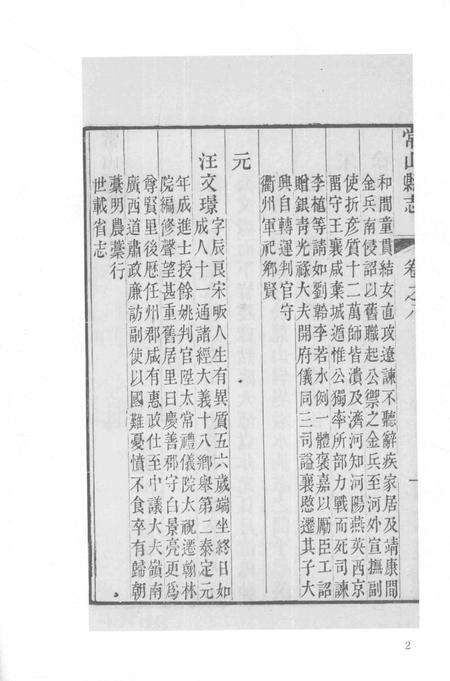 常山縣志
卷之八
和間童貫結女直攻遼諫不聽辭疾家居及靖康間
金兵南侵詔以舊職起公禦之金兵至河外宣撫副
使折彥質十二萬師皆潰及濟河知河陽燕英西京
畱守王襄咸棄城遁惟公獨率所部力戰而死司諫
李植等請如劉韐李若水例一體褒嘉以勵臣工詔
贈銀青光祿大夫開府儀同三司謚襄愍遷其子大
興自轉運判官守
衢州軍祀鄉賢
元
汪文璟
字辰良宋畈人生有異質五六歲端坐終日如
成人十一通諸經大義十八鄉舉第二泰定元
年成進士授餘姚判官陞太常禮儀院太祝遷翰林
院編修聲望甚重舊居里曰慶善郡守白景亮更爲
尊賢里後歷任州郡咸有惠政仕至中議大夫嶺南
廣西道肅政廉訪副使以國難憂憤不食卒有歸朝
藁明農藁行
世載省志
2